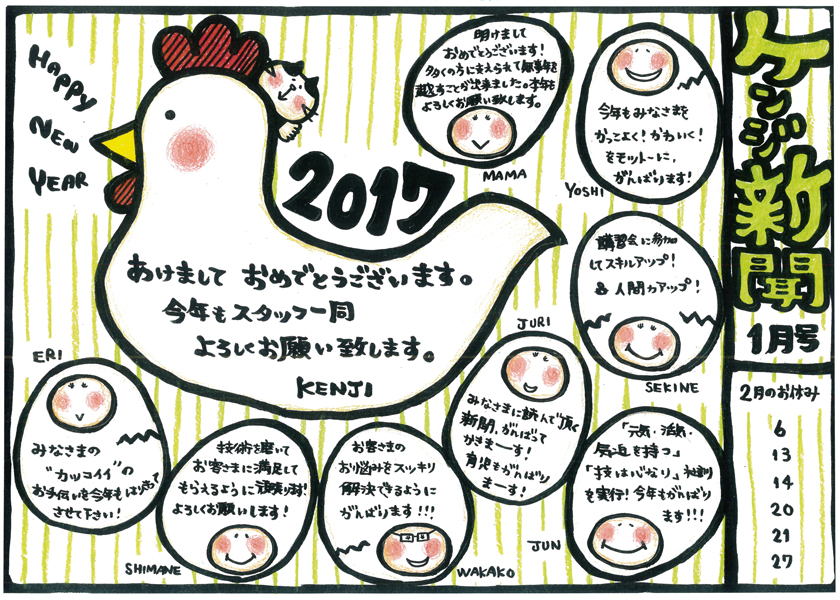 ケンジ新聞
1月号
2月のお休み
6
13
14
20
21
27
HAPPY
NEW
YEAR
2017
あけまして おめでとうございます。
今年もスタッフ一同
よろしくお願い致します。
KENJI
明けまして
おめでとうございます!
多くの方に支えられて無事年を
越すことが出来ました。本年も
よろしくお願い致します。
MAMA
今年もみなさまを
かっこよく!かわいく!
をモットーに、
がんばります!
YOSHI
講習会に参加
してスキルアップ!
& 人間力アップ!
SEKINE
JURI
みなさまに読んで頂く
新聞、がんばって
かきまーす!
育児もがんばり
まーす!
「元気・活気・
気迫を持つ」
「技は心なり」
を実行!今年もがんばり
ます!!!
JUN
お客さまの
お悩みをスッキリ
解決できるように
がんばります!!!
WAKAKO
技術を磨いて
お客さまに満足して
もらえるように頑張ります!
よろしくお願いします!
SHIMANE
ERI
みなさまの
"カッコイイ"の
お手伝いを今年も
させて下さい!